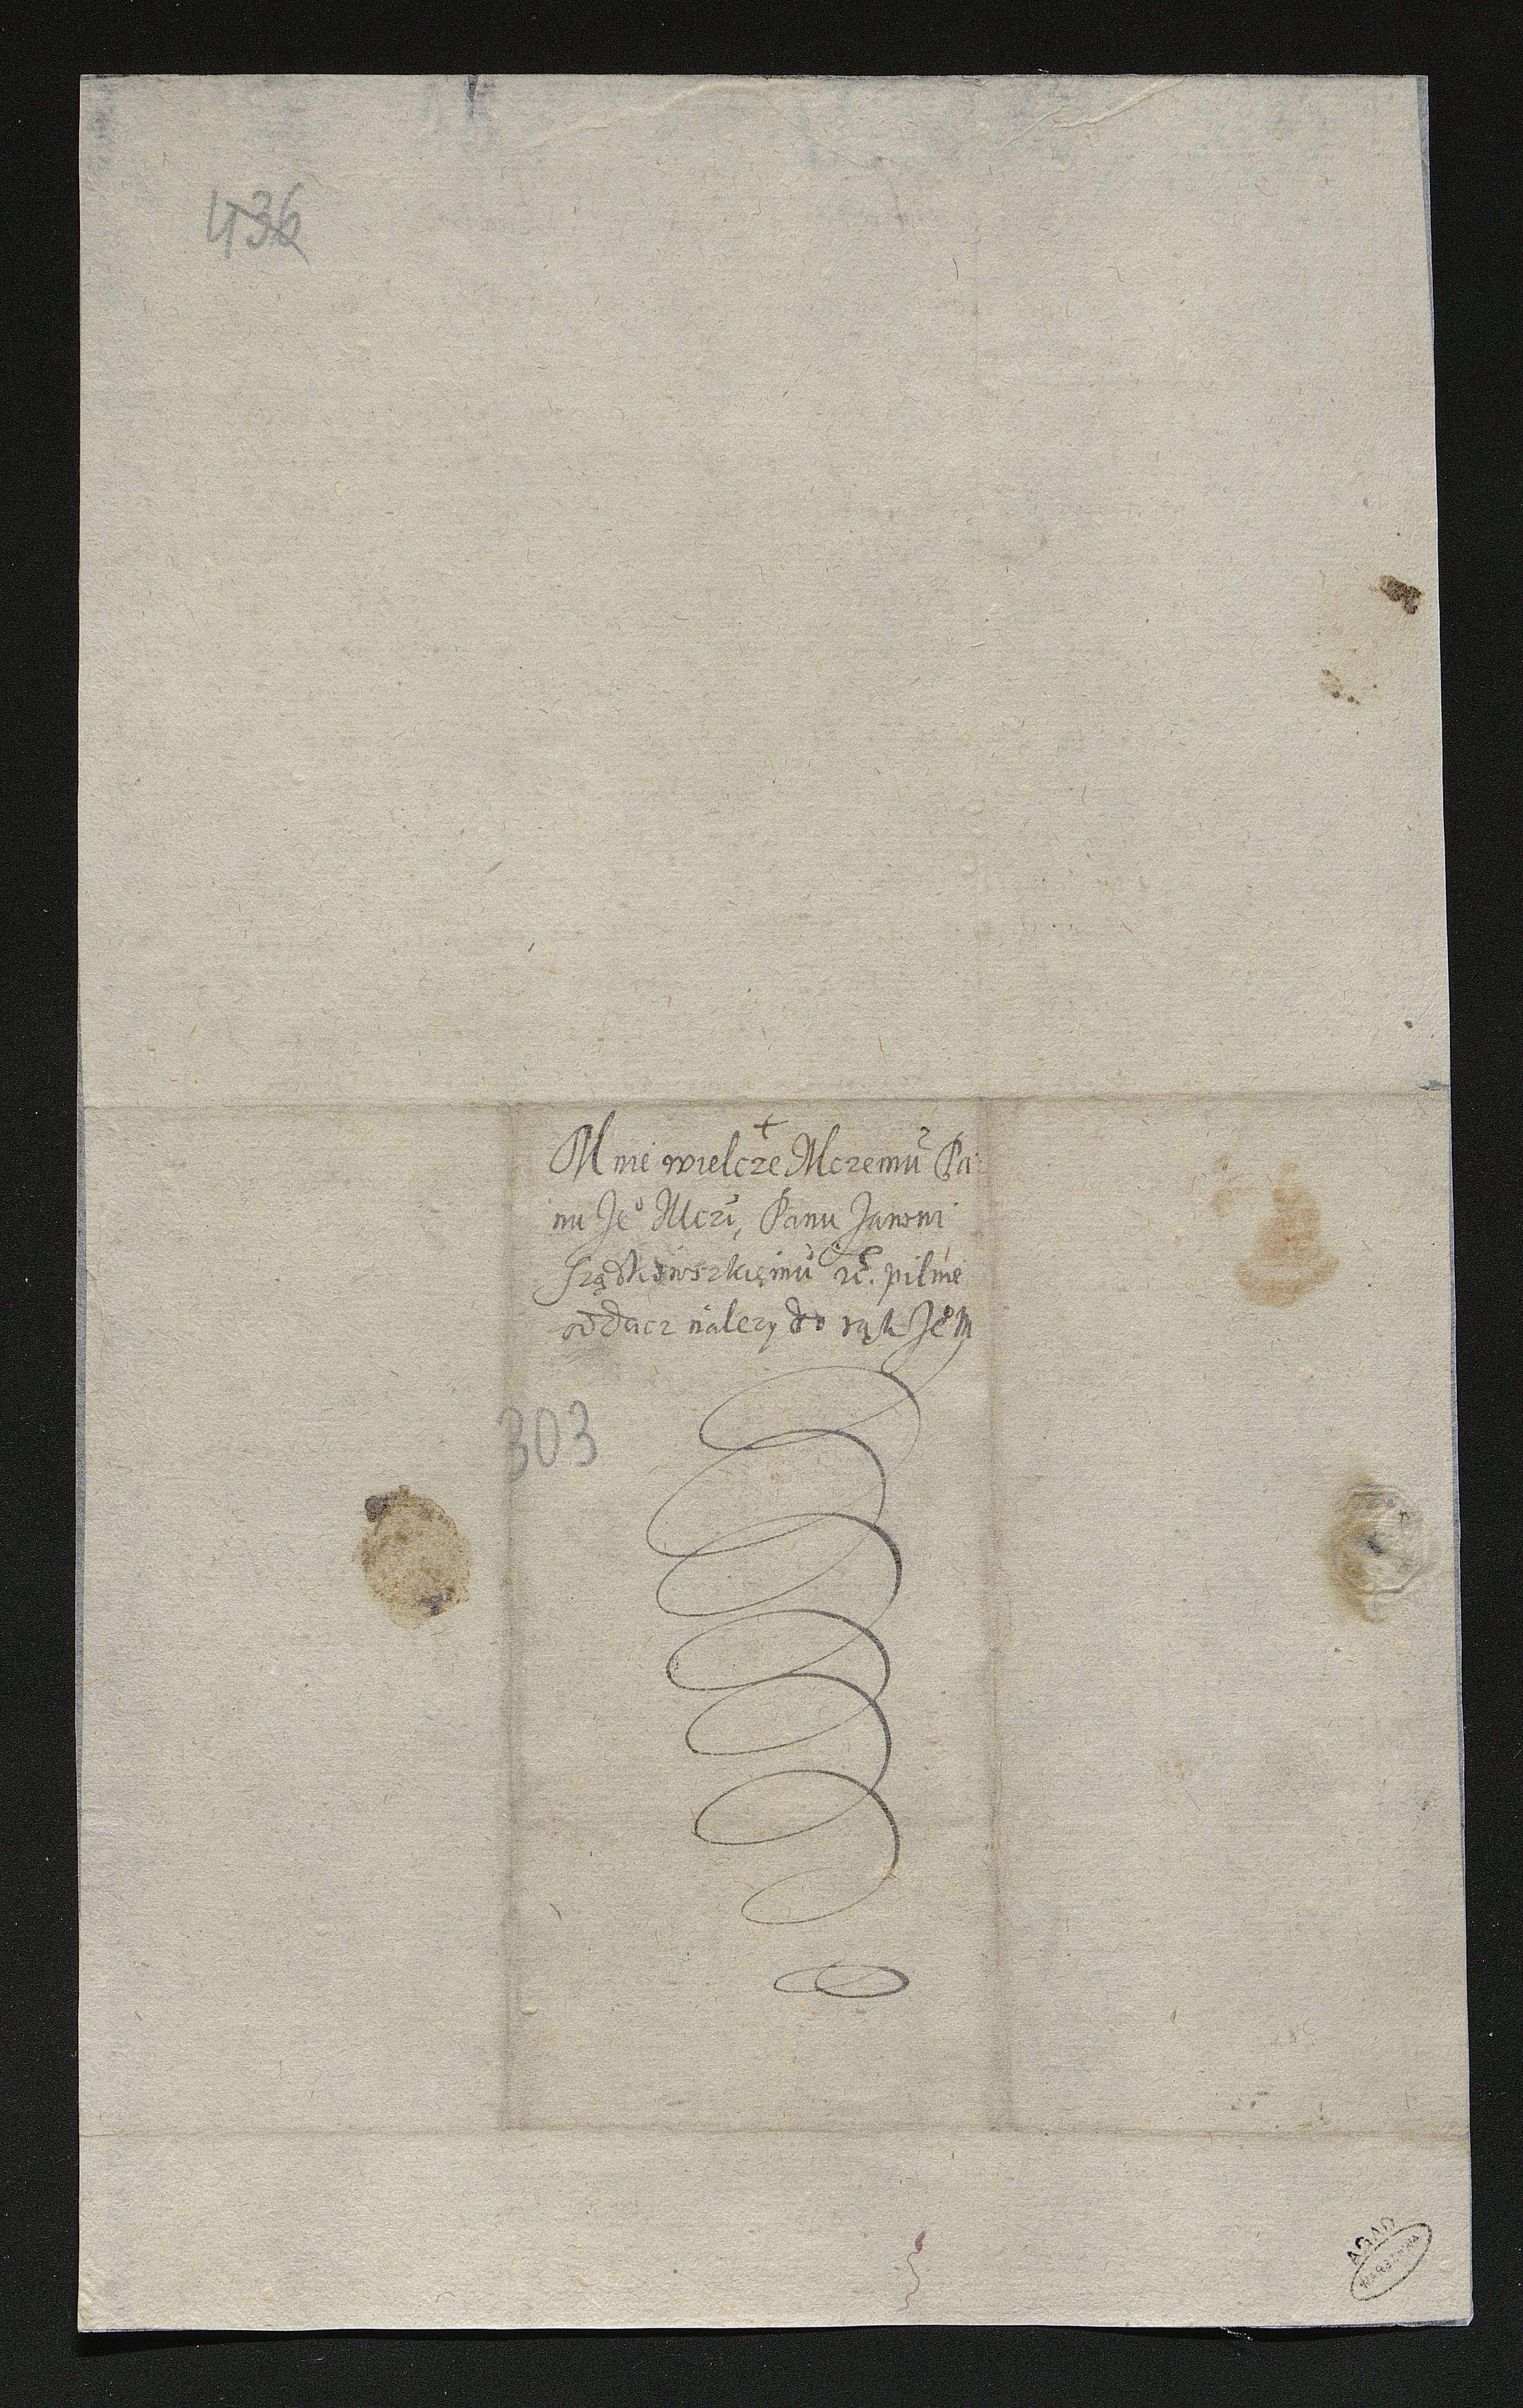 436
+
Mnie wielcze Mczemu Pa:
nu Jeo Mczi, Panu Janowi
rc. pilnie
oddacz nalezy do rąk Jeo M
303
AGAD
WARSZAWA